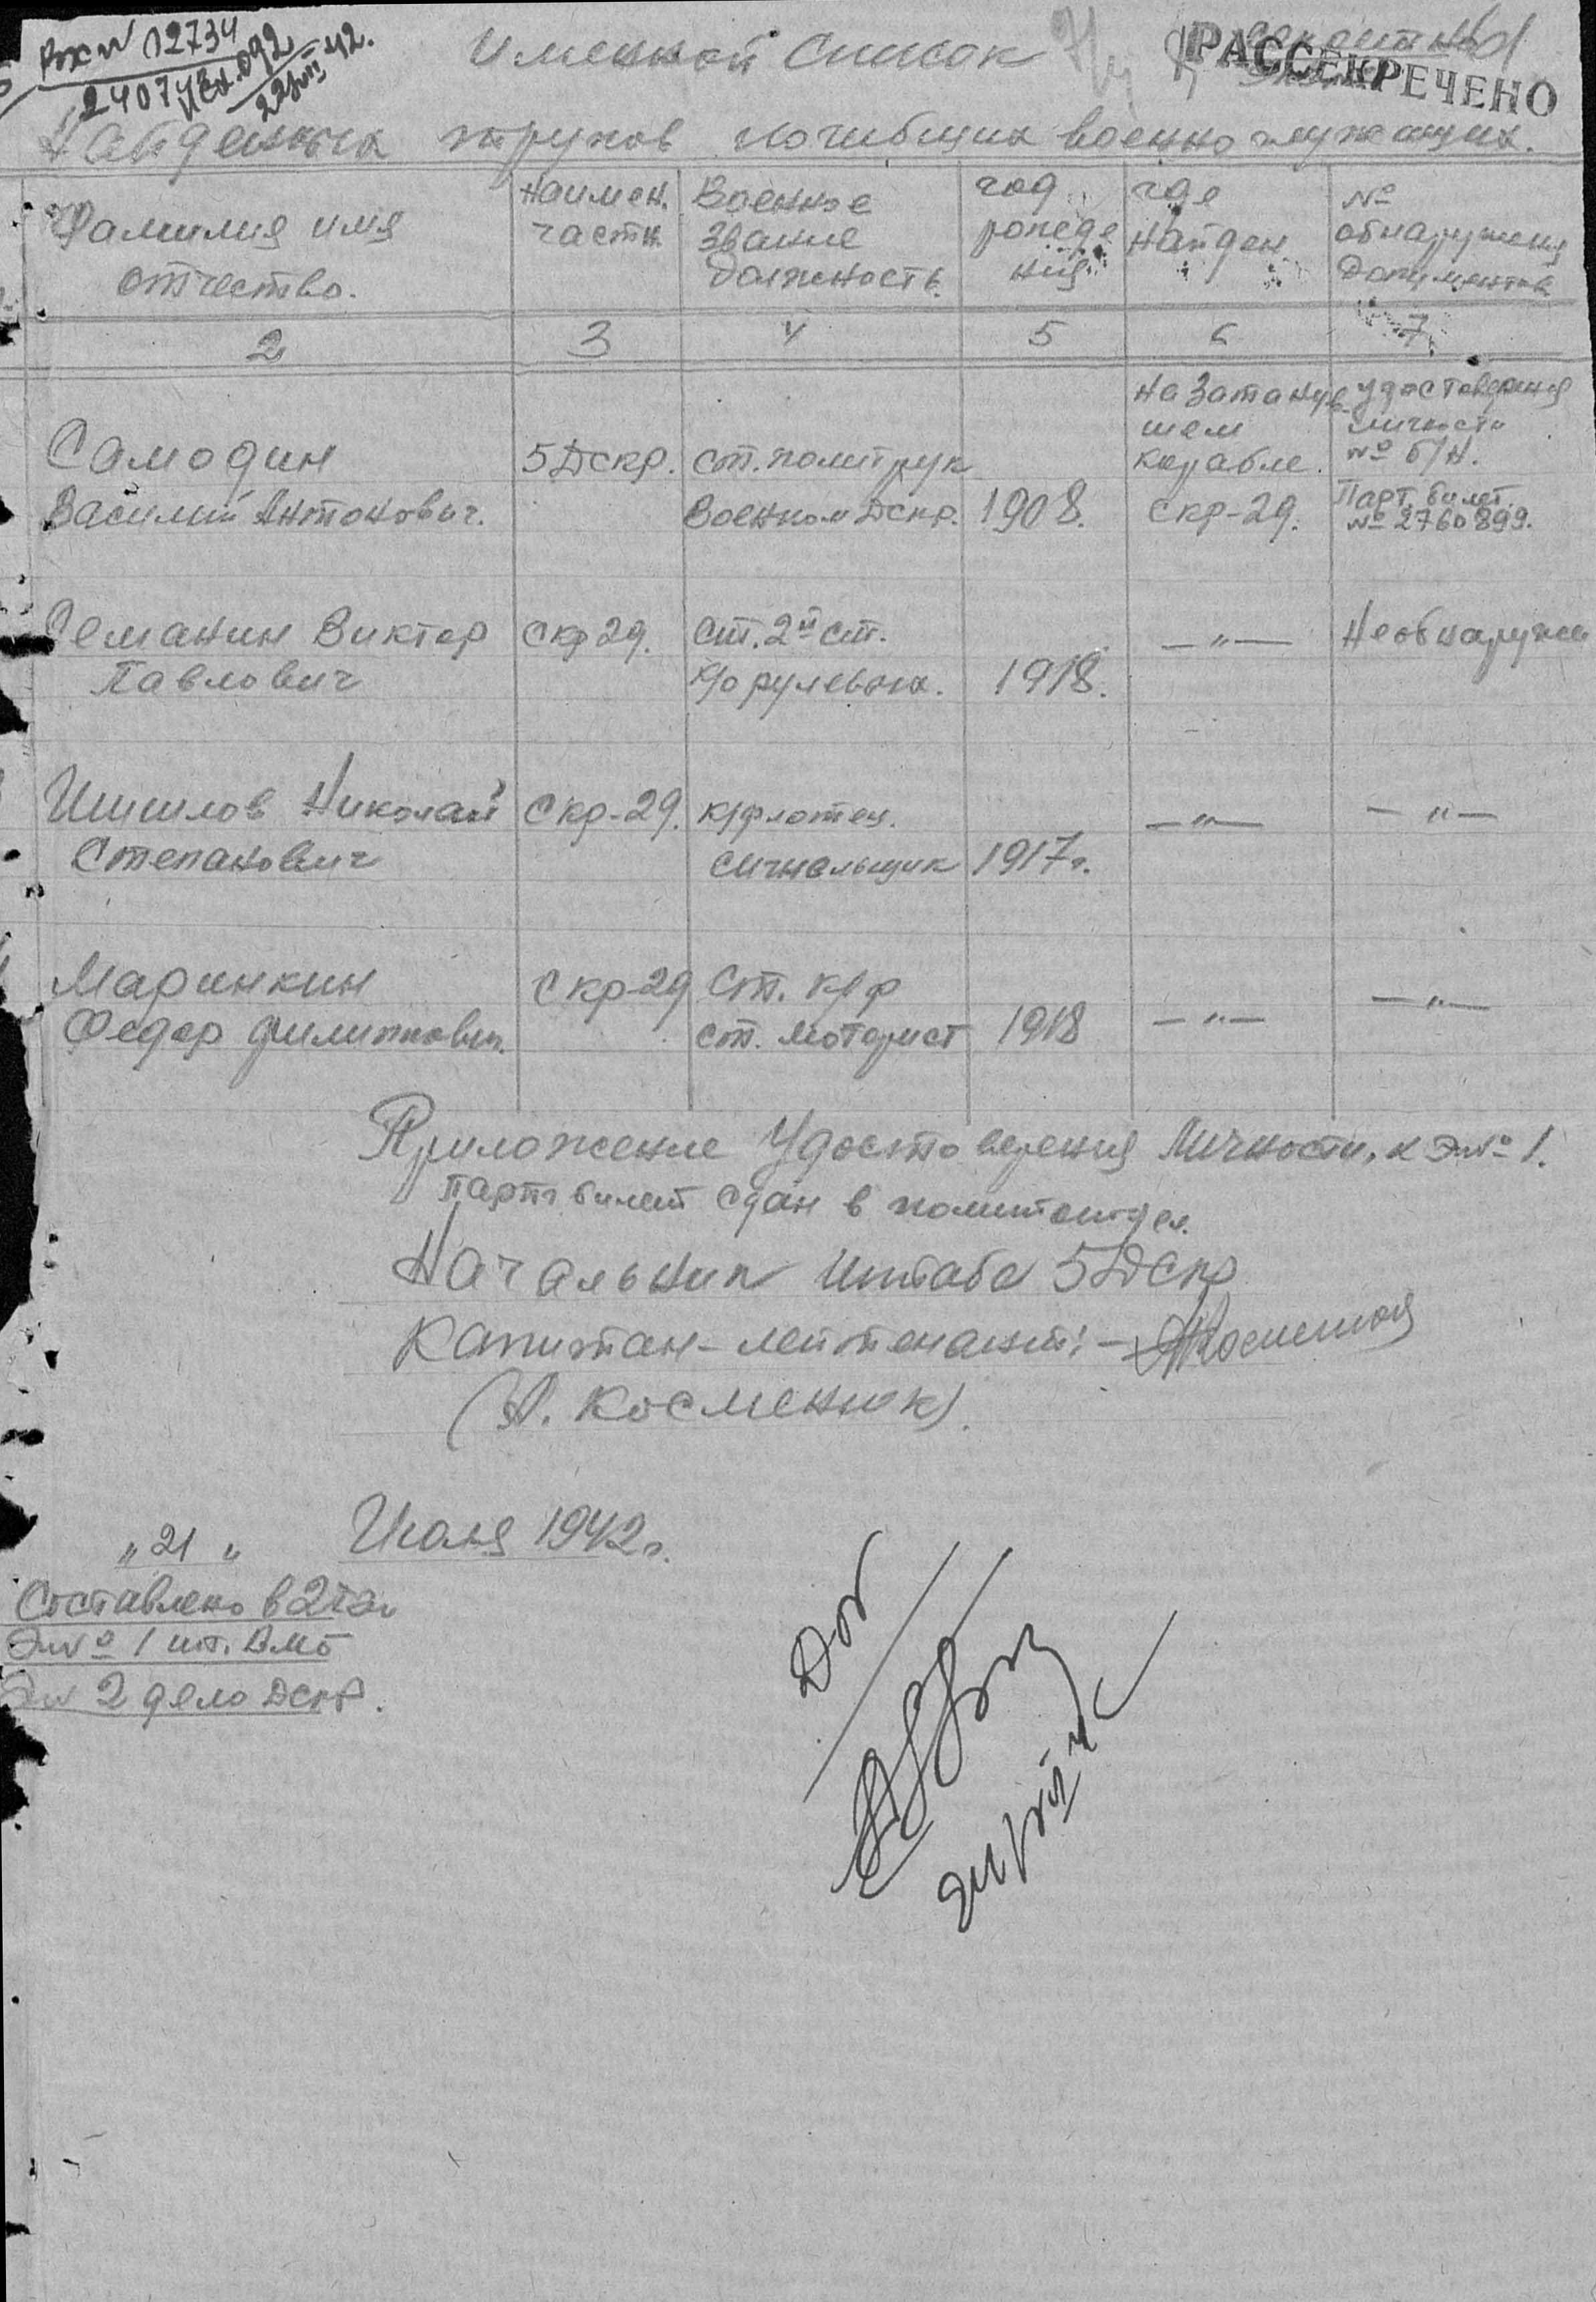 Вх № 12734
24074
092
22/VII-42.
Именной Список
РАССЕКРЕЧЕНО
Найденных трупов погибших военнослужащих.
Фамилия имя отчество.
Наимен. части.
Военное звание должность.
год рождения
где найден
№ обнаружения документов
2 3 4 5 6 7
Самодин Василий Антонович.
5 Дскр.
ст. политрук Военком Дскр.
1908.
На затонувшем корабле. Скр-29.
удостоверения личности № б/н. Парт. билет № 2760899.
Виктор Павлович
Скр 29.
Ст. 2й ст. к/о рулевых.
1918.
— " —
Не обнаружен
Шишлов Николай Степанович
Скр-29.
к/флотец. сигнальщик
1917 г.
— " —
— " —
Маринкин Федор Филиппович.
Скр-29
Ст. к/ф ст. моторист
1918
— " —
— " —
Приложение Удостоверения Личности, к Э №1.
Парт. билет сдан в политотдел.
Начальник Штаба 5 ДСкр
Капитан-лейтенант: —
(А. Косменюк).
" 21 " Июля 1942 г.
Составлено в 2х эк
Эк № 1 шт. ВМБ
Эк 2 дело Дскр.